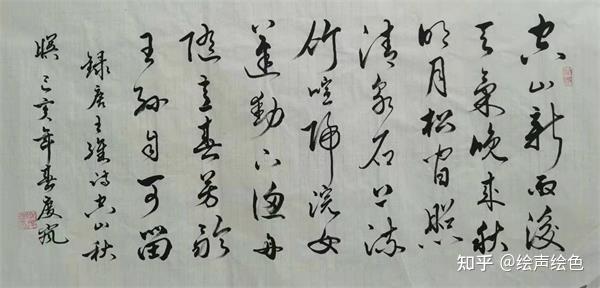 空山新雨後
天氣晚来秋
明月松间照
清泉石上流
竹喧歸浣女
蓮動下漁舟
隨意春芳歇
王孫自可留
録唐王維詩空山秋
暝己亥年春慶
知乎 @绘声绘色